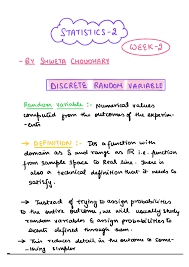 STATISTICS-2
WEEK-2
- BY SHWETA CHOUDHARY
DISCRETE RANDOM VARIABLE
Random variable :- Numerical values
computed from the outcomes of the experim-
-ents
→ DEFINITION :- It's a function with
domain as S and range as R i.e. function
from sample space to Real line. There is
also a technical definition that it needs to
satisfy.
→ Instead of trying to assign probabilities
to the entire outcome, we will usually study
random variables & assign probabilities to
events defined through them.
→ This reduces detail in the outcome to some-
-thing simpler